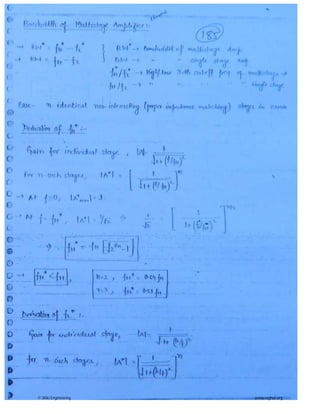 Bandwidth of Multistage Amplifier :-
(185)
→ BW* = fH* − fL* } BW* → bandwidth of multistage Amp
→ BW = fH − fL } BW → " " single stage Amp
fH*/fL* → High/Low 3db cutoff freq of multistage
fH/fL → " " " single stage
Case - n identical non interacting (proper impedance matching) stages in
Derivation of fH* :-
Gain for individual stage, |A| = 1/√(1+(f/fH)²)
For n such stages, |A*| = [1/√(1+(f/fH)²)]^n
→ At f=0, |A*| = 1.
→ At f = fH*, |A*| = 1/√2 ⇒ 1/√2 = [1/(1+(fH*/fH)²)]^n/2
⇒ fH* = fH [√(2^1/n − 1)]
→ fH* < fH, n=2, fH* = 0.64 fH
Derivation of fL* :-
Gain for individual stage, |A| = 1/√(1+(fL/f)²)
for n such stages, |A*| = [1/√(1+(fL/f)²)]^n